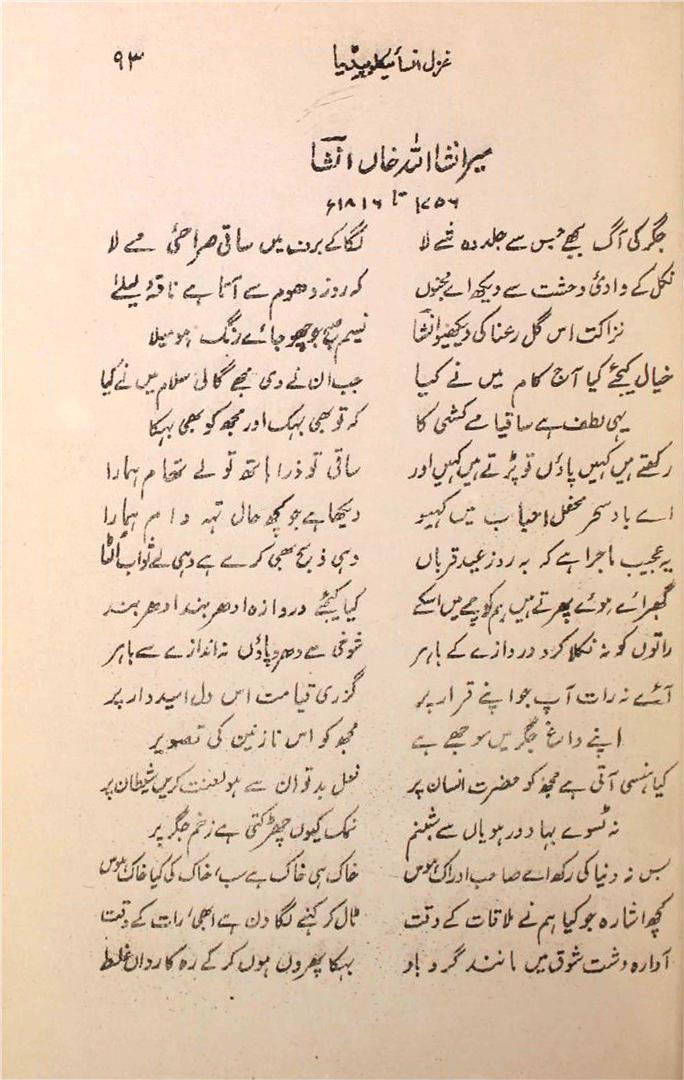 غزل انسائیکلوپیڈیا ۹۳
میر انشا اللہ خاں انشا
۱۷۵۶ تا ۱۸۱۶ء
جگر کی آگ بجھے جس سے جلد وہ شے لا لگا کے برف میں ساقی صراحیٔ مے لا
نکل کے وادیٔ وحشت سے دیکھ اے مجنوں کہ روز دھوم سے آتا ہے ناقۂ لیلےٰ
نزاکت اس گل رعنا کی دیکھیو انشا نسیم صبح جو چھو جائے رنگ ہو میلا
خیال کیجئے کیا آج کام میں نے کیا جب ان نے دی مجھے گالی سلام میں نے کیا
یہی لطف ہے ساقیا مے کشی کا کہ تو بھی بہک اور مجھ کو بھی بہکا
رکھتے ہیں کہیں پاؤں تو پڑتے ہیں کہیں اور ساقی تو ذرا ہاتھ تو لے تھام ہمارا
اے باد سحر محفل احباب میں کہیو دیکھا ہے جو کچھ حال تہہ دام ہمارا
یہ عجیب ماجرا ہے کہ بہ روز عید قرباں وہی ذبح بھی کرے ہے وہی لے ثواب الٹا
گھبرائے ہوئے پھرتے ہیں ہم کوچے میں اسکے کیا کیجئے دروازہ ادھر بند ادھر بند
راتوں کو نہ نکلا کرو دروازے کے باہر شوخی سے دھرو پاؤں نہ اندازے سے باہر
آئے نہ رات آپ جو اپنے قرار پر گزری قیامت اس دل امیدوار پر
اپنے داغ جگر میں سوجھے ہے مجھ کو اس نازنین کی تصویر
کیا ہنسی آتی ہے مجھ کو حضرت انسان پر فعل بد تو ان سے ہو لعنت کریں شیطان پر
نہ ٹسوے بہا دور ہو یاں سے شبنم نمک کیوں چھڑکتی ہے زخم جگر پر
بس نہ دنیا کی رکھ اے صاحب ادراک ہوس خاک ہی خاک ہے سب، خاک کی کیا خاک ہوس
کچھ اشارہ جو کیا ہم نے ملاقات کے وقت ٹال کر کہنے لگا دن ہے ابھی، رات کے وقت
آوارہ دشت شوق میں مانند گرد باد بہکا پھروں ہوں کر کے رہ کارواں غلط